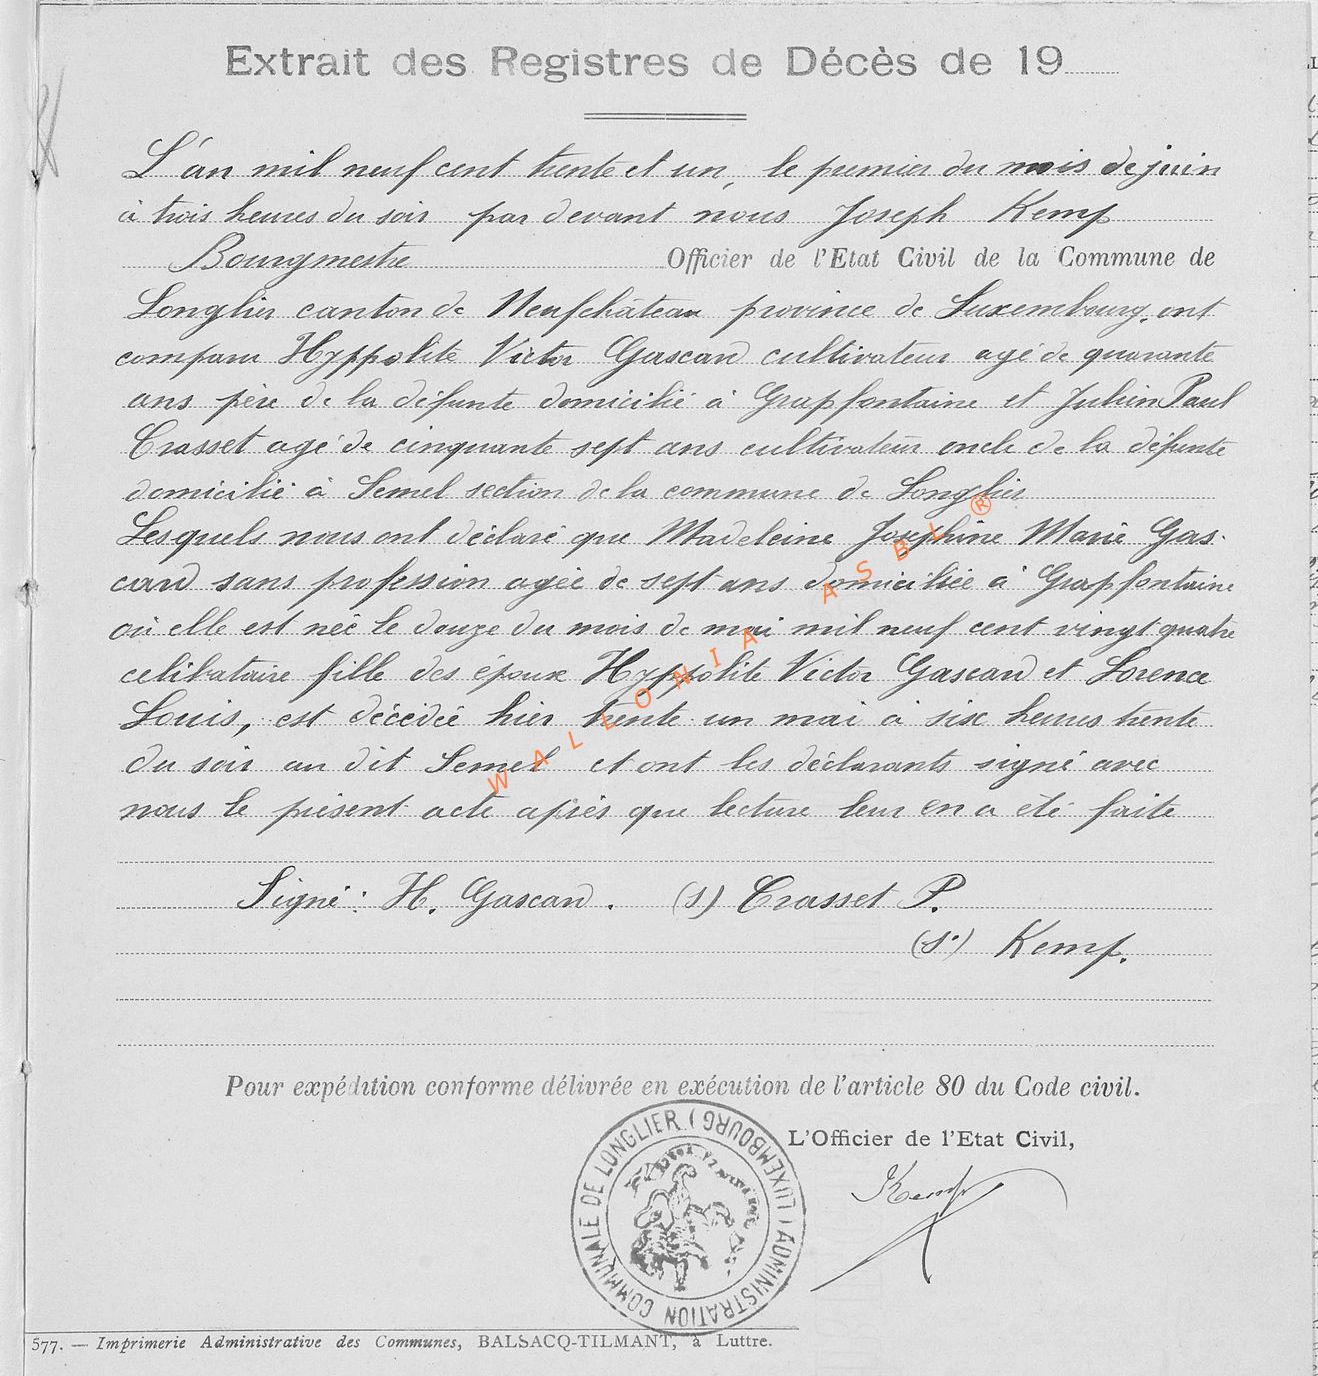 Extrait des Registres de Décès de 19
L'an mil neuf cent trente et un, le premier du mois de juin
à trois heures du soir par devant nous Joseph Kemp
Bourgmestre Officier de l'Etat Civil de la Commune de
Longlier canton de Neufchâteau province de Luxembourg, ont
comparu Hyppolite Victor Gascard cultivateur agé de quarante
ans père de la défunte domicilié à Grapfontaine et Julien Paul
Crasset agé de cinquante sept ans cultivateur oncle de la défunte
domicilié à Semel section de la commune de Longlier
Lesquels nous ont déclaré que Madeleine Joséphine Marie Gas-
card sans profession agée de sept ans domiciliée à Grapfontaine
où elle est née le douze du mois de mai mil neuf cent vingt quatre
celibataire fille des époux Hyppolite Victor Gascard et Lorence
Louis, est décédée hier trente un mai à six heures trente
du soir au dit Semel et ont les déclarants signé avec
nous le présent acte après que lecture leur en a été faite
Signé: H. Gascard. (s) Crasset P.
(s.) Kemp.
Pour expédition conforme délivrée en exécution de l'article 80 du Code civil.
L'Officier de l'Etat Civil,
Kemp
ADMINISTRATION COMMUNALE DE LONGLIER (LUXEMBOURG)
577. — Imprimerie Administrative des Communes, BALSACQ-TILMANT, à Luttre.
WALLONIA ASBL ®